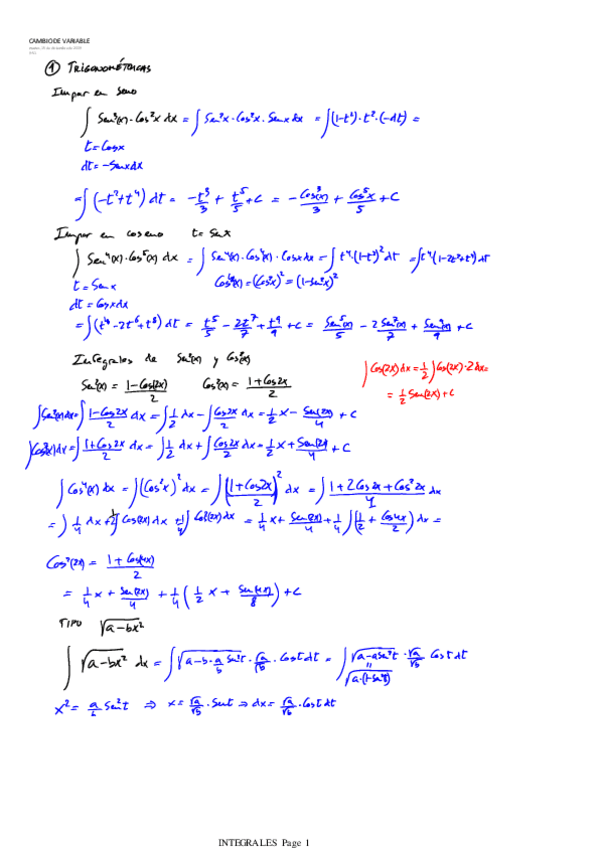 CAMBIO DE VARIABLE
① TRIGONOMÉTRICAS
Impar en seno
∫ Sen³(x)·Cos²x dx = ∫ Sen²x·Cos²x·Senx dx = ∫(1-t²)·t²·(-dt) =
t=Cosx
dt=-Senxdx
=∫(-t²+t⁴)dt = -t³/3 + t⁵/5 + C = -Cos³(x)/3 + Cos⁵x/5 + C
Impar en coseno t=Senx
∫ Sen⁴(x)·Cos⁵(x) dx = ∫ Sen⁴(x)·Cos⁴(x)·Cosxdx = ∫ t⁴·(1-t²)² dt = ∫t⁴(1-2t²+t⁴)dt
t=Senx Cos⁴(x)=(Cos²x)²=(1-sen²x)²
dt=Cosxdx
=∫(t⁴-2t⁶+t⁸)dt = t⁵/5 - 2t⁷/7 + t⁹/9 + C = Sen⁵(x)/5 - 2Sen⁷(x)/7 + Sen⁹(x)/9 + C
Integrales de Sen²(x) y Cos²(x)
∫Cos(2x)dx = 1/2 ∫Cos(2x)·2dx=
Sen²(x) = 1-Cos(2x)/2 Cos²(x) = 1+Cos2x/2
= 1/2 Sen(2x)+C
∫Sen²(x)dx=∫ 1-Cos2x/2 dx = ∫1/2 dx - ∫Cos2x/2 dx = 1/2 x - Sen(2x)/4 + C
∫Cos²(x)dx=∫ 1+Cos2x/2 dx = ∫1/2 dx + ∫Cos2x/2 dx = 1/2 x + Sen(2x)/4 + C
∫Cos⁴(x) dx = ∫(Cos²x)² dx = ∫(1+Cos2x/2)² dx = ∫ 1+2Cos2x+Cos²2x/4 dx
= ∫1/4 dx + 1/2 ∫Cos(2x)dx + 1/4 ∫Cos²(2x)dx = 1/4 x + Sen(2x)/4 + 1/4 ∫(1/2 + Cos4x/2) dx =
Cos²(2x) = 1+Cos(4x)/2
= 1/4 x + Sen(2x)/4 + 1/4 (1/2 x + Sen(4x)/8) + C
TIPO √a-bx²
∫√a-bx² dx = ∫√a-b·a/b Sen²t · √a/√b · Costdt = ∫√a-aSen²t · √a/√b Cost dt
=
√a·(1-Sen²t)
x² = a/b Sen²t ⇒ x = √a/√b · Sent ⇒ dx = √a/√b · Costdt
INTEGRALES Page 1